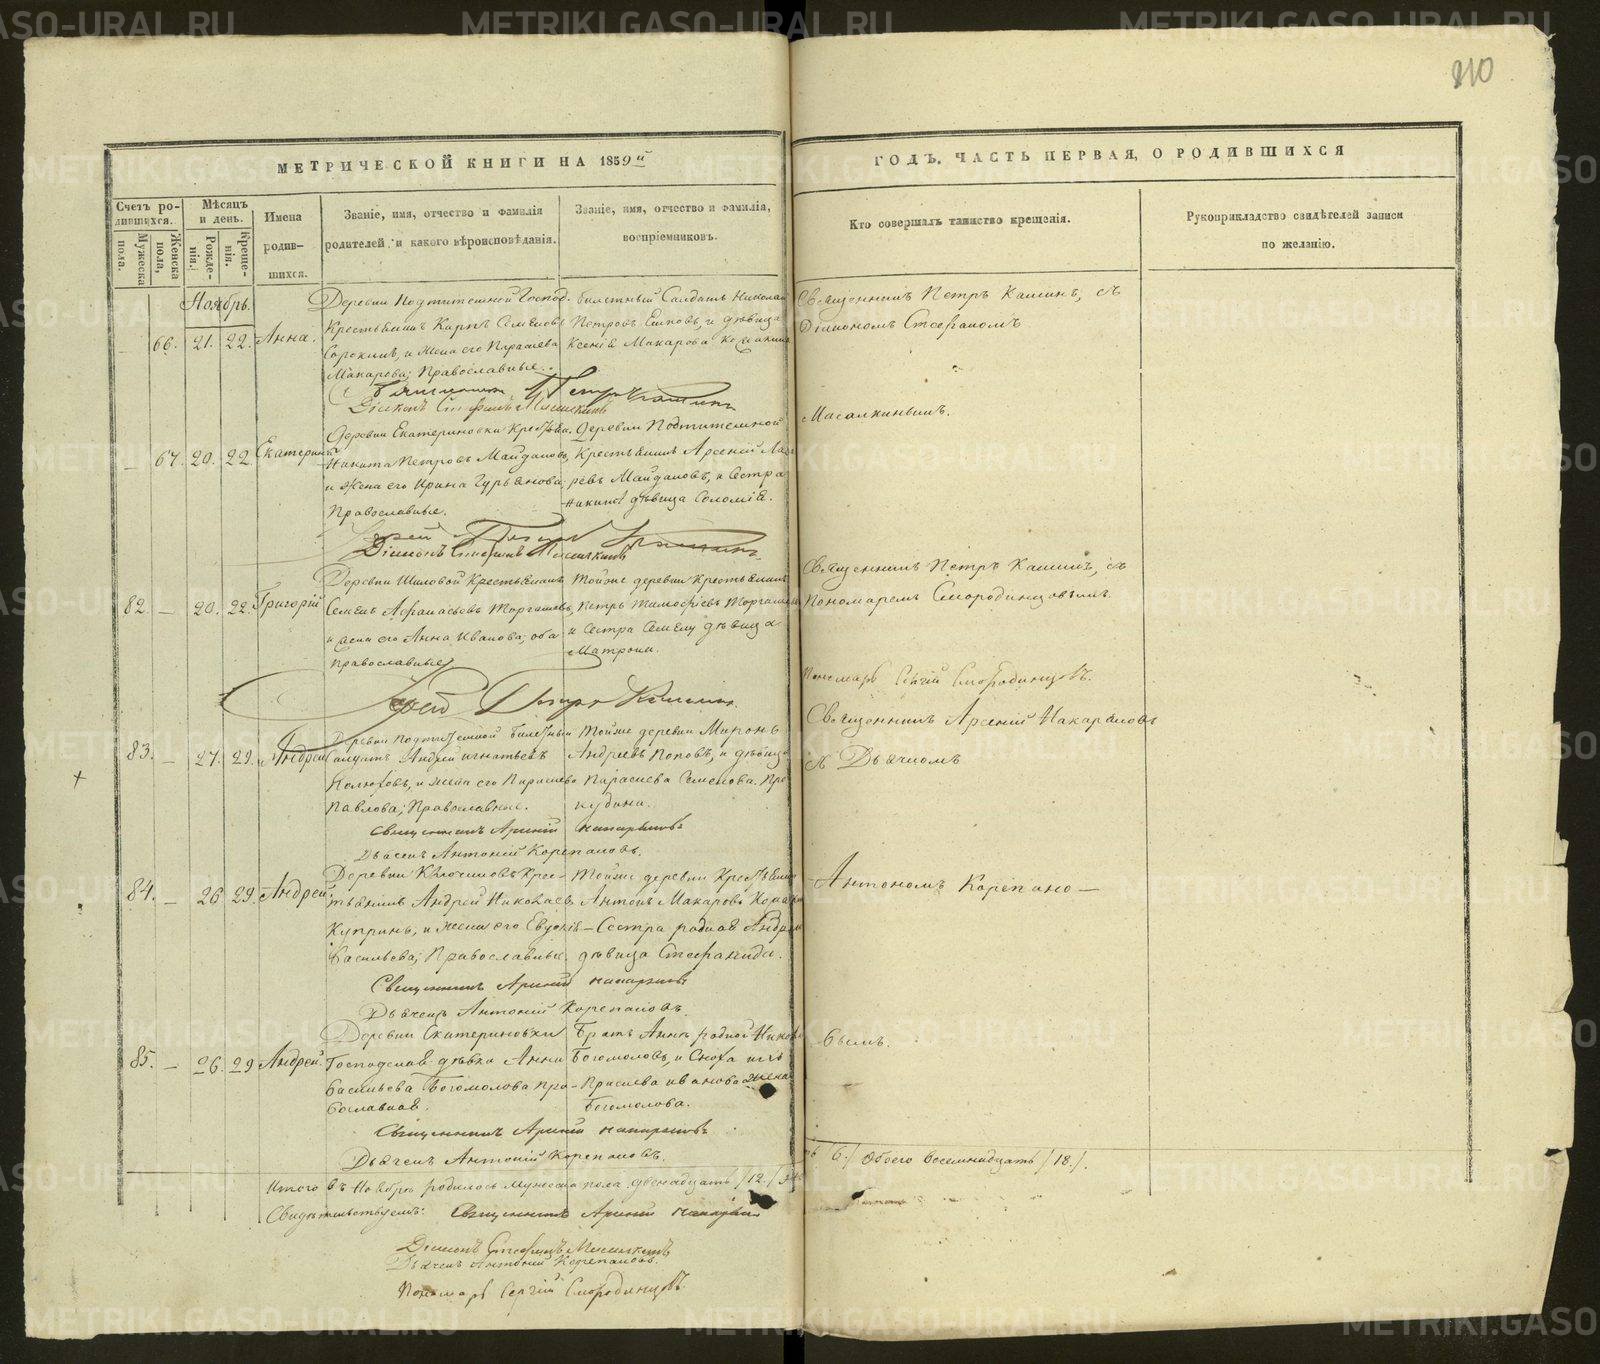 210
МЕТРИЧЕСКОЙ КНИГИ НА 1859й
ГОДЪ, ЧАСТЬ ПЕРВАЯ, О РОДИВШИХСЯ
Счетъ родившихся.
Мужеска пола.
Женска пола,
Мѣсяцъ и день.
Рожденія.
Крещенія.
Имена родившихся.
Званіе, имя, отчество и фамилія
родителей, и какого вѣроисповѣданія.
Званіе, имя, отчество и фамилія,
воспріемниковъ.
Кто совершалъ таинство крещенія.
Рукоприкладство свидѣтелей записи
по желанію.
Ноябрь.
66. 21. 22. Анна.
Деревни Подтитешной Господ.
Крестьянинъ Карпъ Семеновъ
Сорокинъ, и жена его Парасева
Макарова; Православные.
билетный Салдатъ Николай
Петровъ Ешковъ, и дѣвица
Ксенія Макарова
Священникъ Петръ Кашинъ, съ
Діакономъ Стефаномъ
Священникъ Петръ Кашинъ
Діаконъ Стефанъ Масалкинъ
Масалкинымъ.
67. 20. 22. Екатерина
Деревни Екатериновки Крестьян.
Никита Петровъ Майдановъ,
и жена его Ирина Гурьянова;
Православные.
Деревни Подтитешной
Крестьянинъ Арсеній
Майдановъ, и Сестра
Никиты дѣвица Соломія.
Іерей Петръ Кашинъ
Діаконъ Стефанъ Масалкинъ
82. — 20. 22. Григорій
Деревни Шиловой Крестьянинъ
Семенъ Афанасьевъ Торгашевъ,
и жена его Анна Иванова; оба
православные
Тойже деревни Крестьянинъ
Петръ Тимофѣевъ Торгашевъ
и Сестра Семену дѣвица
Матрона.
Священникъ Петръ Кашинъ, съ
Пономаремъ Смородинцовымъ.
Іерей Петръ Кашинъ.
Пономарь Сергій Смородинцовъ.
83. — 27. 29. Андрей
Деревни Подтитешной билетный
Салдатъ Андрей Игнатьевъ
и жена его Парасева
Павлова; Православные.
Тойже деревни Миронъ
Андреевъ Поповъ, и дѣвица
Парасева Семенова
Священникъ Арсеній Макаровъ
съ Дьячкомъ
Священникъ Арсеній
Дьячекъ Антоній Корепановъ.
84. — 26. 29. Андрей
Деревни Ключиковъ Крес-
тьянинъ Андрей Николаевъ
Купринъ, и жена его Евдокія
Васильева; Православные.
Тойже деревни Крестьянинъ
Антонъ Макаровъ
Сестра родная Андрею
дѣвица Стефанида.
Антономъ Корепано—
Священникъ Арсеній
Дьячекъ Антоній Корепановъ.
85. — 26. 29 Андрей.
Деревни Екатериновки
Господская дѣвка Анна
Васильева Богомолова пра-
вославная.
Братъ Анны родной
Богомоловъ, и Сноха ихъ
Прасева Иванова жена
Богомолова.
вымъ.
Священникъ Арсеній
Дьячекъ Антоній Корепановъ.
Итого въ Ноябрѣ родилось Мужеска пола двенадцать /12./
6./ Обоего восемнадцать /18./.
Свидѣтельствуемъ: Священникъ Арсеній
Діаконъ Стефанъ Масалкинъ
Дьячекъ Антоній Корепановъ.
Пономарь Сергій Смородинцовъ
METRIKI.GASO-URAL.RU